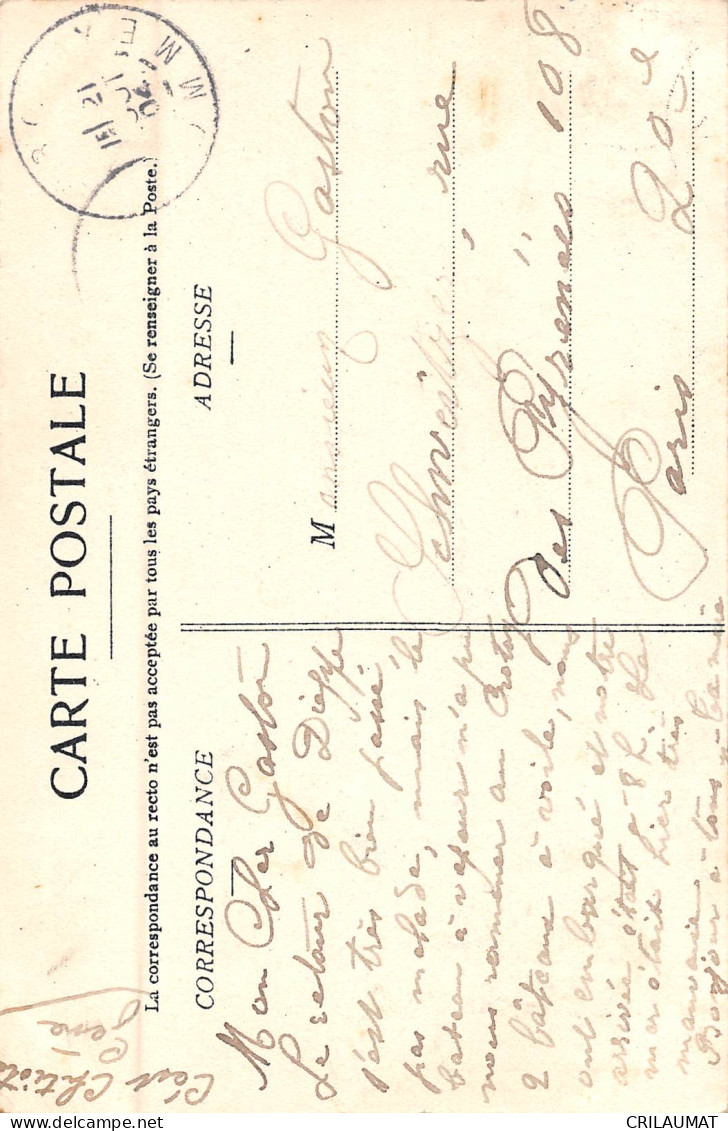 CARTE POSTALE
La correspondance au recto n'est pas acceptée par tous les pays étrangers. (Se renseigner à la Poste.)
CORRESPONDANCE
Mon Cher Gaston
Le retour de Dieppe
s'est très bien passé
pas malade, mais le
bateau à vapeur n'a pu
nous ramener au Crotoy
2 bâteaux à voile, nous
ont embarqué et notre
arrivée était à 8h. La
mer était hier très
mauvaise
Bonjour à tous
ADRESSE
Monsieur Gaston
rue
des Pyrénées 108
Paris 20e
CRILAUMAT